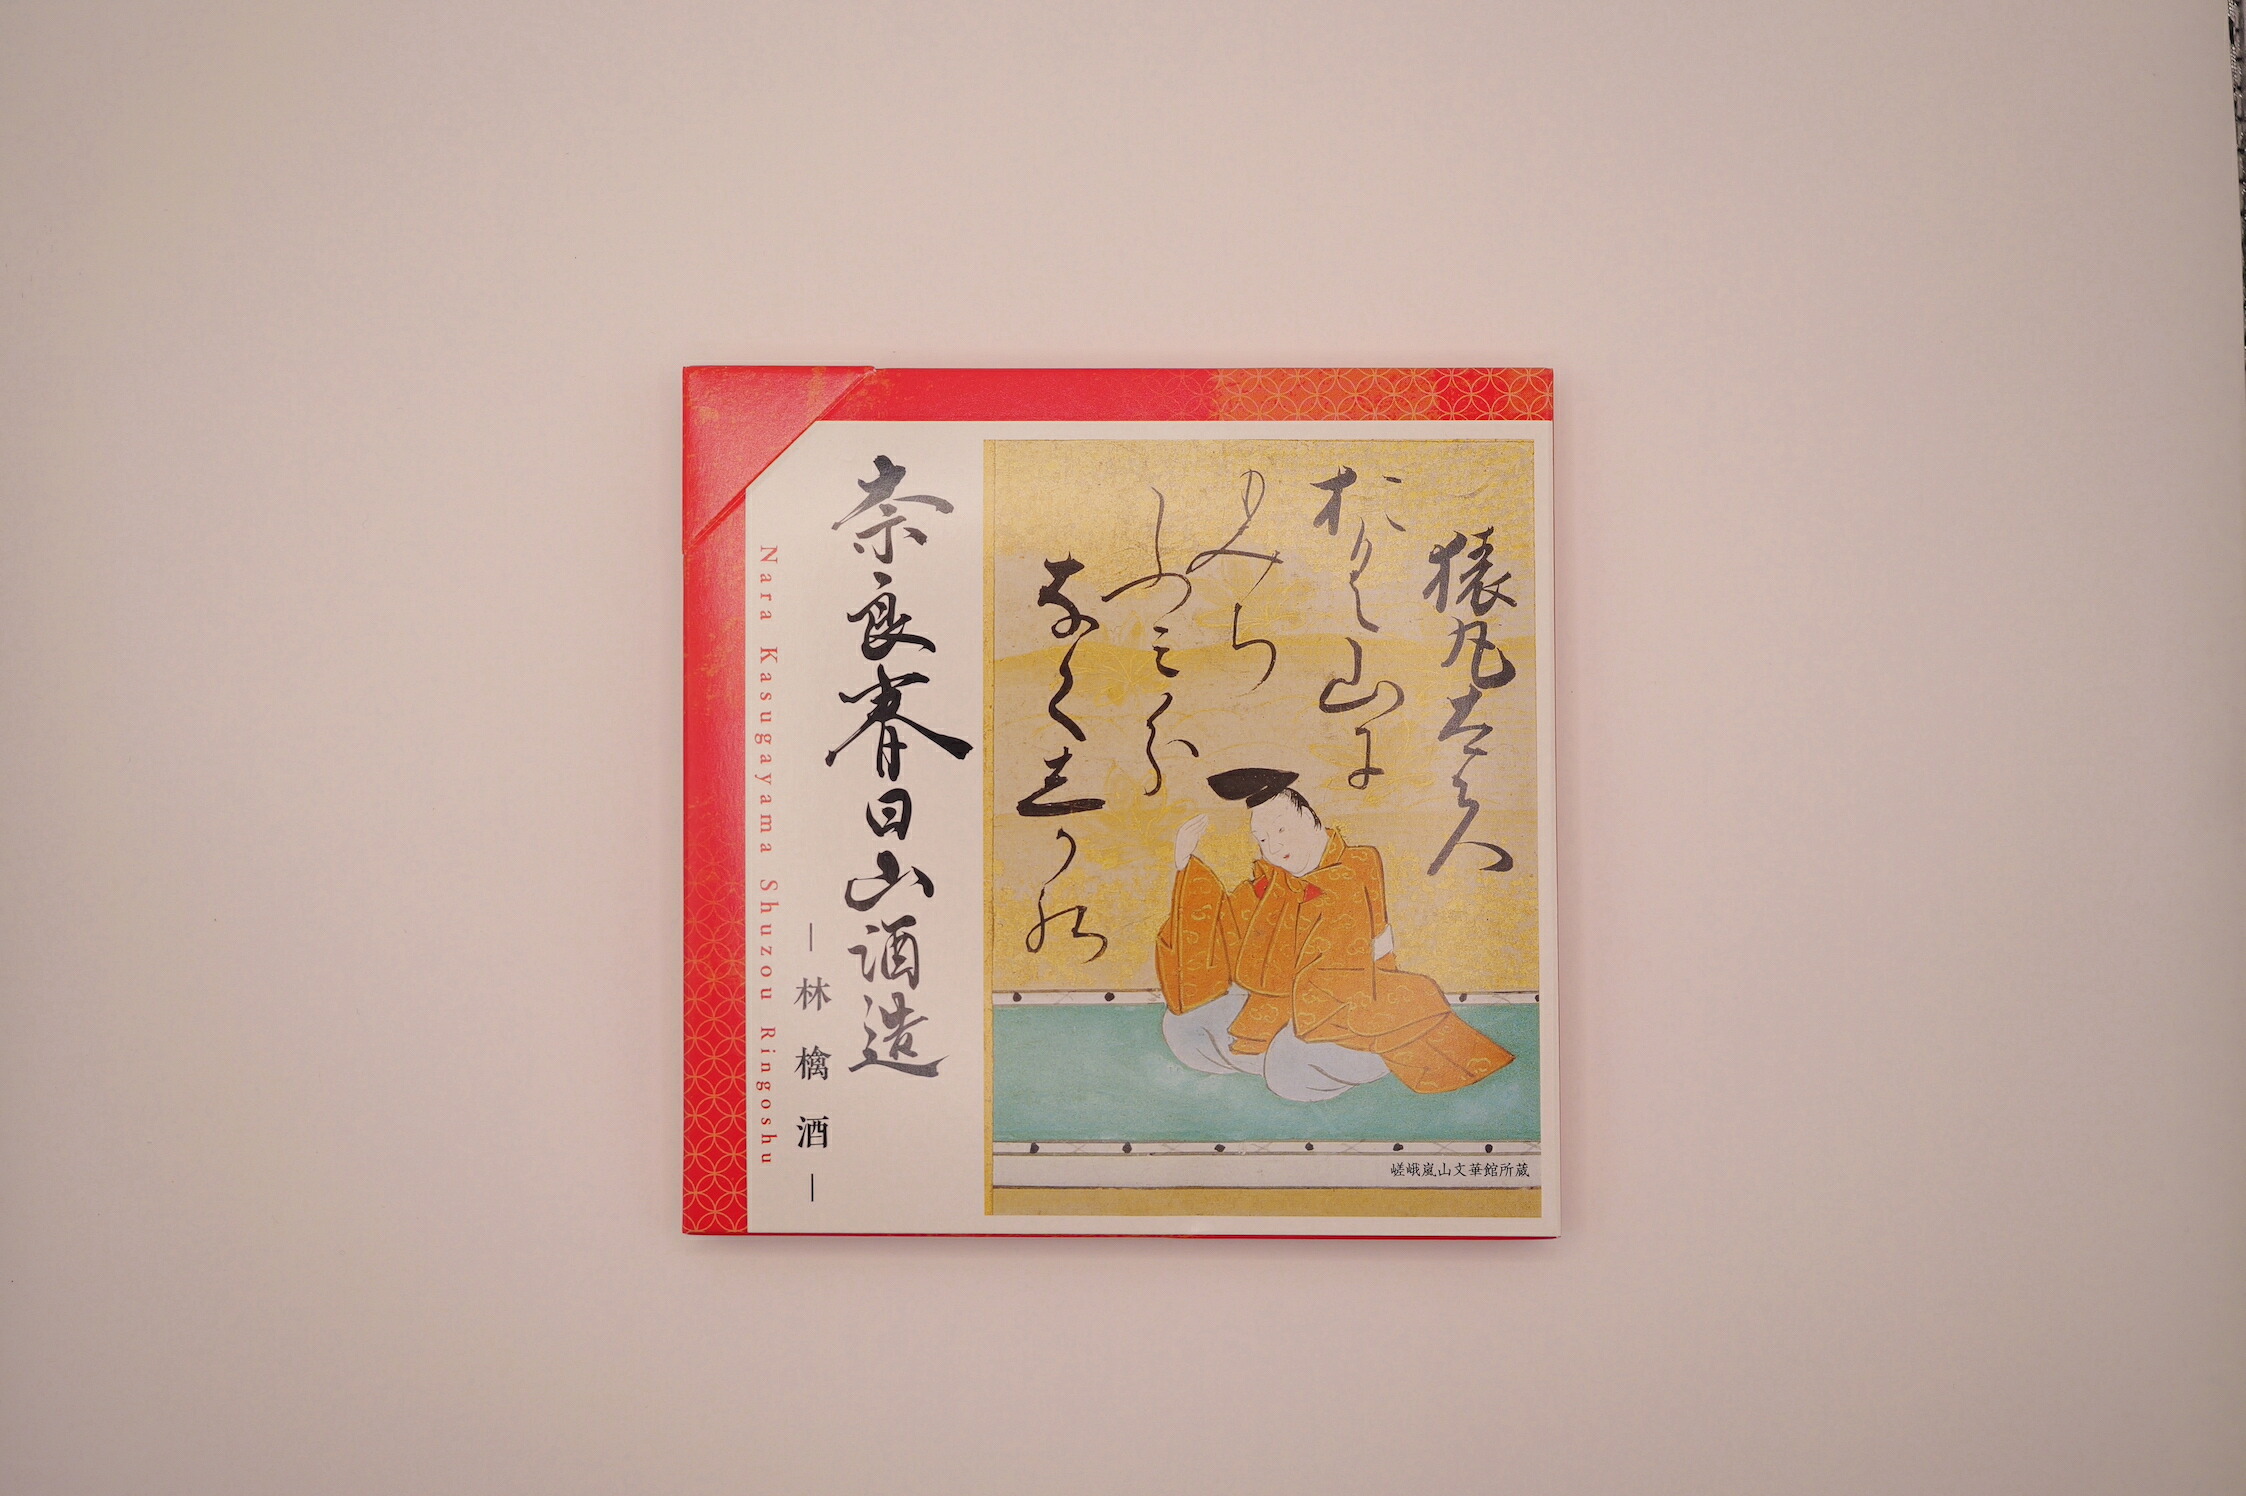 奈良春日山酒造
―林檎酒―
Nara Kasugayama Shuzou Ringoshu
猿丸太夫
おく山に
もみち
ふみ分
なく志かの
嵯峨嵐山文華館所蔵